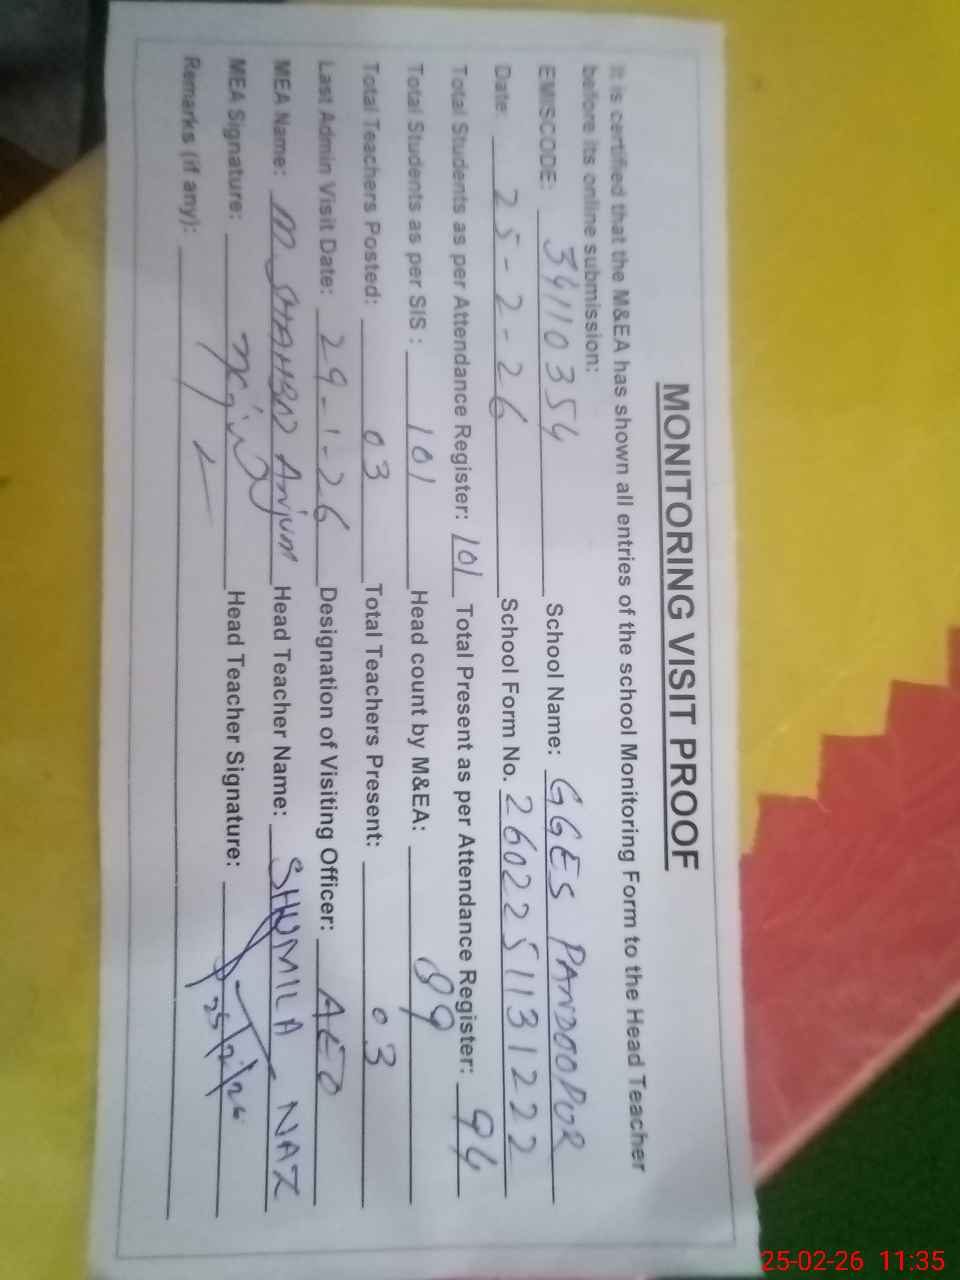 MONITORING VISIT PROOF
It is certified that the M&EA has shown all entries of the school Monitoring Form to the Head Teacher
before its online submission:
EMISCODE: 34110354 School Name: GGES PANDOOPUR
Date: 25-2-26 School Form No. 2602251131222
Total Students as per Attendance Register: 101 Total Present as per Attendance Register: 94
Total Students as per SIS : 101 Head count by M&EA: 89
Total Teachers Posted: 03 Total Teachers Present: 03
Last Admin Visit Date: 29-1-26 Designation of Visiting Officer: AEO
MEA Name: M. SHAHBAZ Anjum Head Teacher Name: SHUMILA NAZ
MEA Signature: Head Teacher Signature: 25/2/26
Remarks (if any):
25-02-26 11:35